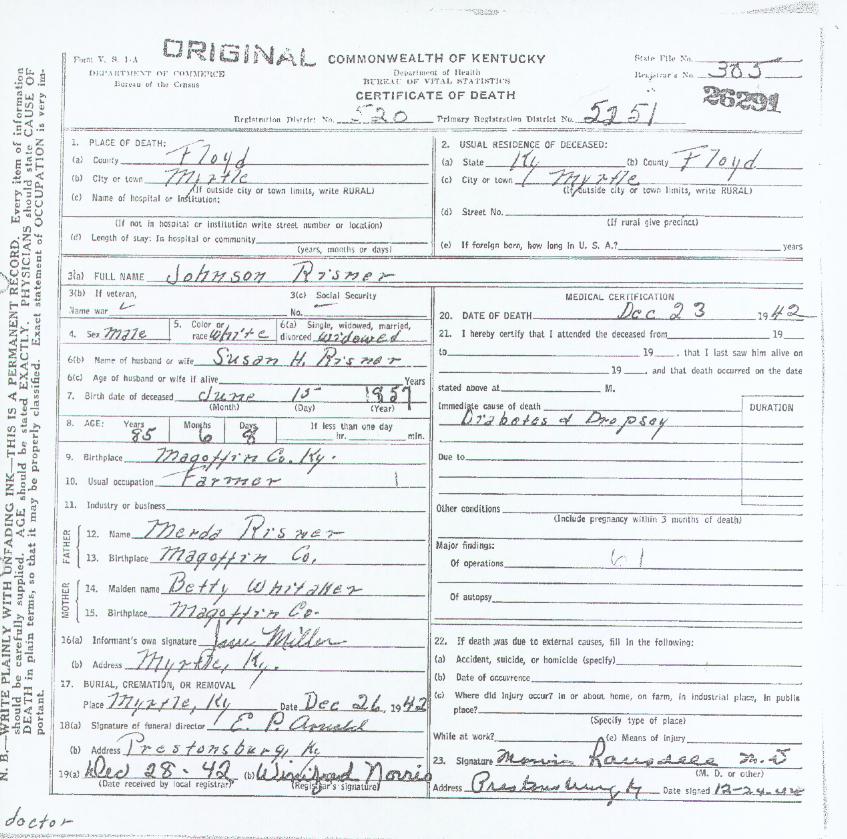 ORIGINAL
Form V. S. 1-A
DEPARTMENT OF COMMERCE
Bureau of the Census
COMMONWEALTH OF KENTUCKY
Department of Health
BUREAU OF VITAL STATISTICS
CERTIFICATE OF DEATH
State File No.
Registrar's No. 385
26291
Registration District No. 520 Primary Registration District No. 5251
1. PLACE OF DEATH:
(a) County Floyd
(b) City or town Myrtle
(If outside city or town limits, write RURAL)
(c) Name of hospital or institution:
(If not in hospital or institution write street number or location)
(d) Length of stay: In hospital or community
(years, months or days)
2. USUAL RESIDENCE OF DECEASED:
(a) State Ky (b) County Floyd
(c) City or town Myrtle
(If outside city or town limits, write RURAL)
(d) Street No.
(If rural give precinct)
(e) If foreign born, how long in U. S. A.? years
3(a) FULL NAME Johnson Risner
3(b) If veteran, 3(c) Social Security
Name war No.
4. Sex male 5. Color or race white 6(a) Single, widowed, married, divorced widowed
6(b) Name of husband or wife Susan H. Risner
6(c) Age of husband or wife if alive Years
7. Birth date of deceased June 15 1857
(Month) (Day) (Year)
8. AGE: Years Months Days If less than one day
85 6 8 hr. min.
9. Birthplace Magoffin Co. Ky.
10. Usual occupation Farmer
11. Industry or business
FATHER
12. Name Merda Risner
13. Birthplace Magoffin Co,
MOTHER
14. Maiden name Betty Whitaker
15. Birthplace Magoffin Co.
16(a) Informant's own signature Miller
(b) Address Myrtle, Ky.
17. BURIAL, CREMATION, OR REMOVAL
Place Myrtle, Ky Date Dec 26, 1942
18(a) Signature of funeral director E. P. Arnold
(b) Address Prestonsburg, K.
19(a) Dec 28-42 (b) Winifred Norris
(Date received by local registrar) (Registrar's signature)
MEDICAL CERTIFICATION
20. DATE OF DEATH Dec 23 1942
21. I hereby certify that I attended the deceased from 19
to 19 , that I last saw him alive on
19 , and that death occurred on the date
stated above at M.
Immediate cause of death DURATION
Diabetes & Dropsy
Due to
Other conditions
(Include pregnancy within 3 months of death)
Major findings:
Of operations 61
Of autopsy
22. If death was due to external causes, fill in the following:
(a) Accident, suicide, or homicide (specify)
(b) Date of occurrence
(c) Where did injury occur? in or about home, on farm, in industrial place, in public
place?
(Specify type of place)
While at work? (e) Means of Injury
23. Signature M.D
(M. D. or other)
Address Prestonsburg Ky Date signed 12-24-42
N. B.—WRITE PLAINLY WITH UNFADING INK—THIS IS A PERMANENT RECORD. Every item of information
should be carefully supplied. AGE should be stated EXACTLY. PHYSICIANS should state CAUSE OF
DEATH in plain terms, so that it may be properly classified. Exact statement of OCCUPATION is very im-
portant.
doctor